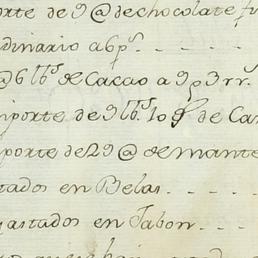 orte de 9 @ de chocolate fu
dinario a 6 p.s
@ 6 lb.s de Cacao a 9 p 3 rr.s
mporte de 9 lb.s 10 de Can
porte de 29 @ de mante
tados en Belas
astados en Jabon